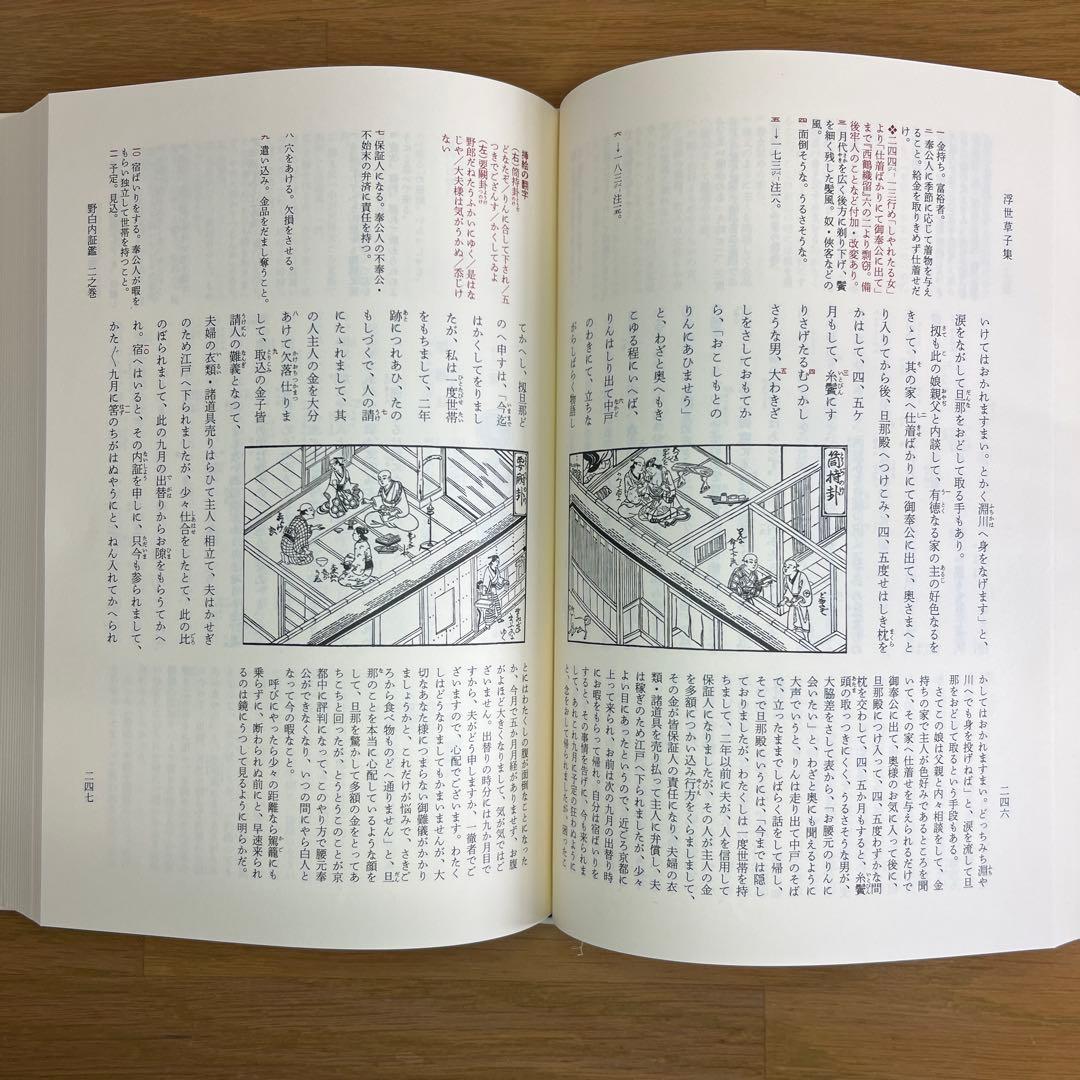 浮世草子集
二四六
一 金持ち。富裕者。
二 奉公人に季節に応じて着物を与え
ること。給金を取りきめず仕着せだ
け。
❖二四四・一三行め「しやれたる女」
より「仕着ばかりにて御奉公に出て」
まで『西鶴織留』六の二より剽窃。備
後牢人のことなど付加・改変あり。
三 月代を広く後方に剃り下げ、鬢
を細く残した髪風。奴・俠客などの
風。
四 面倒そうな。うるさそうな。
五 →一七三・注一八。
六 →一八三・注一二。
いけてはおかれますまい。とかく淵川へ身をなげます」と、
涙をながして旦那をおどして取る手もあり。
扨も此の娘親父と内談して、有徳なる家の主の好色なるを
きゝて、其の家へ仕着ばかりにて御奉公に出て、奥さまへと
り入りてから後、旦那殿へつけこみ、四、五度せはしき枕を
かはして、四、五ケ
月もして、糸鬢にす
りさげたるむつかし
さうな男、大わきざ
しをさしておもてか
ら、「おこしもとの
りんにあひませう」
と、わざと奥へもき
こゆる程にいへば、
りんはしり出て中戸
のわきにて、立ちな
がらしばらく物語し
筒持卦
かしてはおかれますまい。どっちみち淵や
川へでも身を投げねば」と、涙を流して旦
那をおどして取るという手段もある。
さてこの娘は父親と内々相談をして、金
持ちの家で主人が色好みであるところを聞
いて、その家へ仕着せを与えられるだけで
御奉公に出て、奥様のお気に入って後に、
旦那殿につけ入って、四、五度わずかな間
枕を交わして、四、五か月もすると、糸鬢
頭の取っつきにくく、うるさそうな男が、
大脇差をさして表から、「お腰元のりんに
会いたい」と、わざと奥にも聞えるように
大声でいうと、りんは走り出て中戸のそば
で、立ったままでしばらく話をして帰し、
そこで旦那殿にいうには、「今までは隠し
ておりましたが、わたくしは一度世帯を持
ちまして、二年以前に夫が、人を信用して
保証人になりましたが、その人が主人の金
を多額につかい込み行方をくらましまして、
その金が皆保証人の責任になり、夫婦の衣
類・諸道具を売り払って主人に弁償し、夫
は稼ぎのために江戸へ下りましたが、少々
よい目にあったというので、近ごろ京都に
上って来られ、お前は次の九月の出替り時
にお暇をもらって帰れ。自分は宿ばいりを
すると、その事情を告げに、今も来られま
して、あれこれ九月に予定の狂わぬように
と、念をおして帰られましたが、困ったこ
挿絵の翻字
（右）筒持卦
どなたぞ／りんに合して下され／五
つきでござんす／かくしてゐよ
（左）要關卦
野郎だねたうふかいにゆく／是はな
じや／大夫様は気がうかぬ／忝じけ
ない
七 保証人になる。奉公人の不奉公・
不始末の弁済に責任を持つ。
八 穴をあける。欠損をさせる。
九 遣い込み。金品をだまし奪うこと。
一〇 宿ばいりをする。奉公人が暇を
もらい独立して世帯を持つこと。
一一 予定。見込。
野白内証鑑 二之巻
二四七
てかへし、扨旦那ど
のへ申すは、「今迄
はかくしてをりまし
たが、私は一度世帯
をもちまして、二年
跡につれあひ、たの
もしづくで、人の請
にたゝれまして、其
の人主人の金を大分
あけて欠落仕りま
して、取込の金子皆
請人の難義となつて、
夫婦の衣類・諸道具売りはらひて主人へ相立て、夫はかせぎ
のため江戸へ下られましたが、少々仕合をしたとて、此の比
のぼられまして、此の九月の出替りからお隙をもらうてかへ
れ。宿へはいると、その内証を申しに、只今も参られまして、
かた／″＼九月に筈のちがはぬやうにと、ねん入れてかへられ
とにはわたくしの腹が面倒なことになった
か、今月で五か月月経がありませず、お腹
がよほど大きくなりまして、気が気ではご
ざいません。出替りの時分には九か月目で
すから、夫がどう申しますか、一徹者でご
ざいますので、心配でございます。わたく
しはどうなりましてもかまいませんが、大
切なあなた様につまらない御難儀がかかり
ましょうかと、これだけが悩みで、さきご
ろから食べ物ものどへ通りません」と、旦
那のことを本当に心配しているような顔を
して、旦那を驚かして多額の金をとってあ
ちこちと回ったが、とうとうこのことが京
都中に評判になって、このやり方で腰元奉
公ができなくなり、いつの間にやら白人と
なって今の暇なこと。
呼びにやったら少々の距離なら駕籠にも
乗らずに、断わられぬ前にと、早速来られ
るのは鏡にうつして見るように明らかだ。